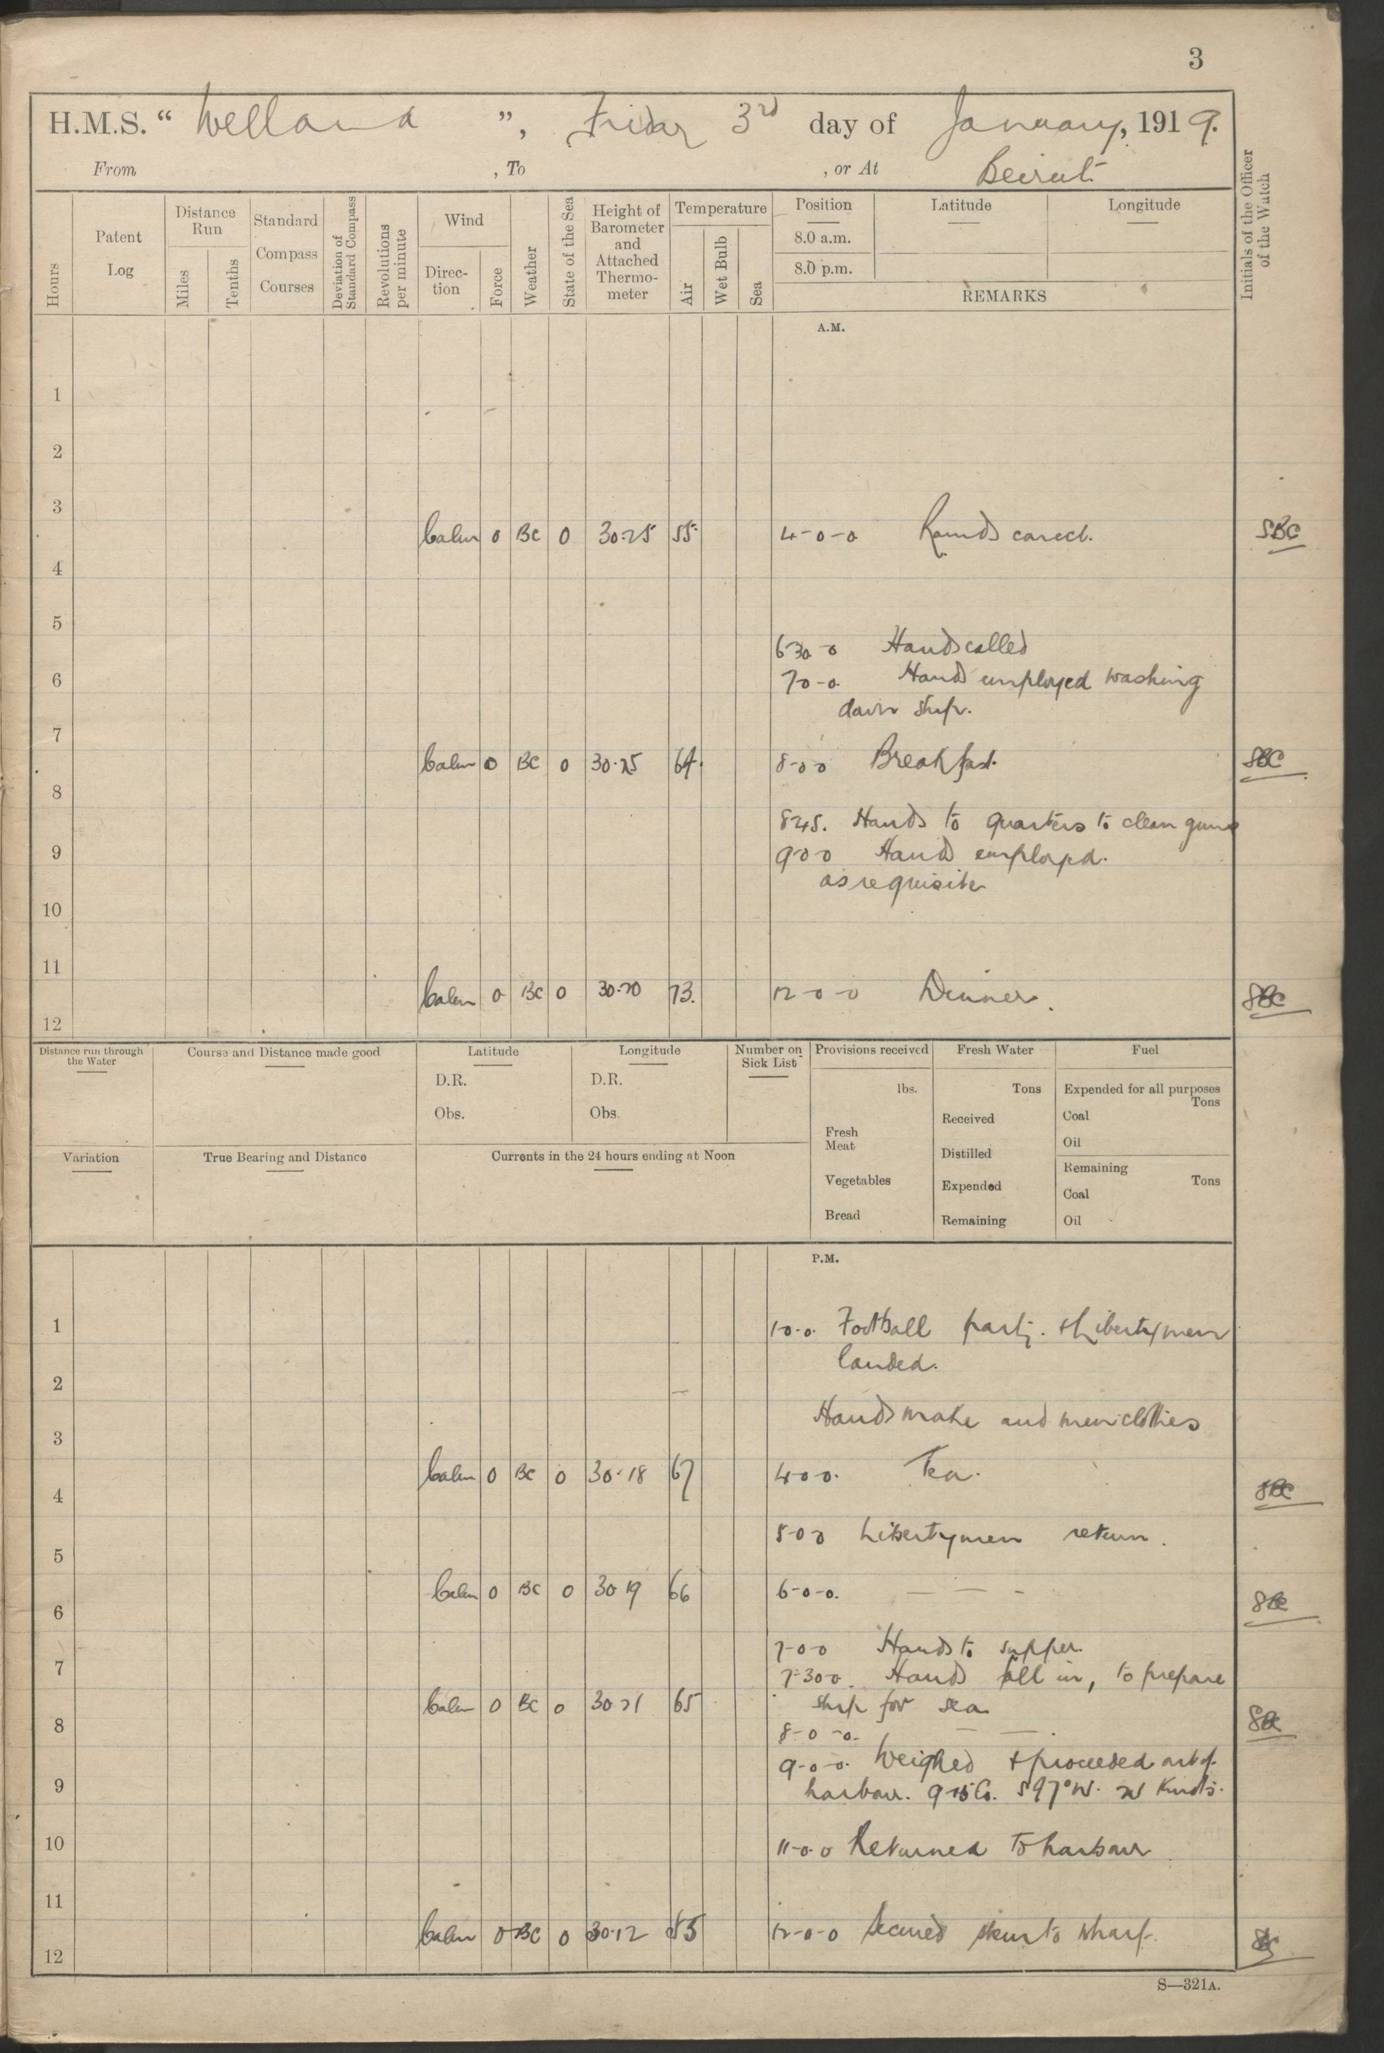 3
H.M.S. "Welland", Friday 3rd day of January, 1919.
From , To , or At Beirut
Hours
Patent Log
Distance Run
Miles
Tenths
Standard Compass Courses
Deviation of Standard Compass
Revolutions per minute
Wind
Direc-tion
Force
Weather
State of the Sea
Height of Barometer and Attached Thermo-meter
Temperature
Air
Wet Bulb
Sea
Position
8.0 a.m.
8.0 p.m.
Latitude
Longitude
REMARKS
Initials of the Officer of the Watch
A.M.
1
2
3
Calm 0 BC 0 30.25 55 4-0-0 Rounds correct. SBC
4
5
6 30 0 Hands called
6 7-0-0. Hands employed washing
down ship.
7
Calm 0 BC 0 30.25 64. 8-0 0 Breakfast. SBC
8
845. Hands to quarters to clean guns
9 9-0 0 Hands employed.
as requisite
10
11
Calm 0 BC 0 30.20 73. 12-0-0 Dinner. SBC
12
Distance run through the Water
Course and Distance made good
Latitude
D.R.
Obs.
Longitude
D.R.
Obs.
Number on Sick List
Provisions received
lbs.
Fresh Meat
Vegetables
Bread
Fresh Water
Tons
Received
Distilled
Expended
Remaining
Fuel
Expended for all purposes
Tons
Coal
Oil
Remaining
Tons
Coal
Oil
Variation
True Bearing and Distance
Currents in the 24 hours ending at Noon
P.M.
1 1-0-0. Football party. & Libertymen
landed.
2
Hands make and mend clothes
3
Calm 0 BC 0 30.18 67 4-0 0. Tea. SBC
4
5-0 0 Libertymen return.
5
Calm 0 BC 0 30 19 66 6-0-0. — — - SBC
6
7-0 0 Hands to supper.
7 7-30 0. Hands fall in, to prepare
Calm 0 BC 0 30 21 65 ship for sea SBC
8 8-0-0. — —
9-0-0. Weighed & proceeded out of
9 harbour. 9-15 Co. S 97°W. Knots.
10 11-0-0 Returned to harbour
11
Calm 0 BC 0 30.12 55 12-0-0 Secured stern to wharf. SBC
12
S—321A.